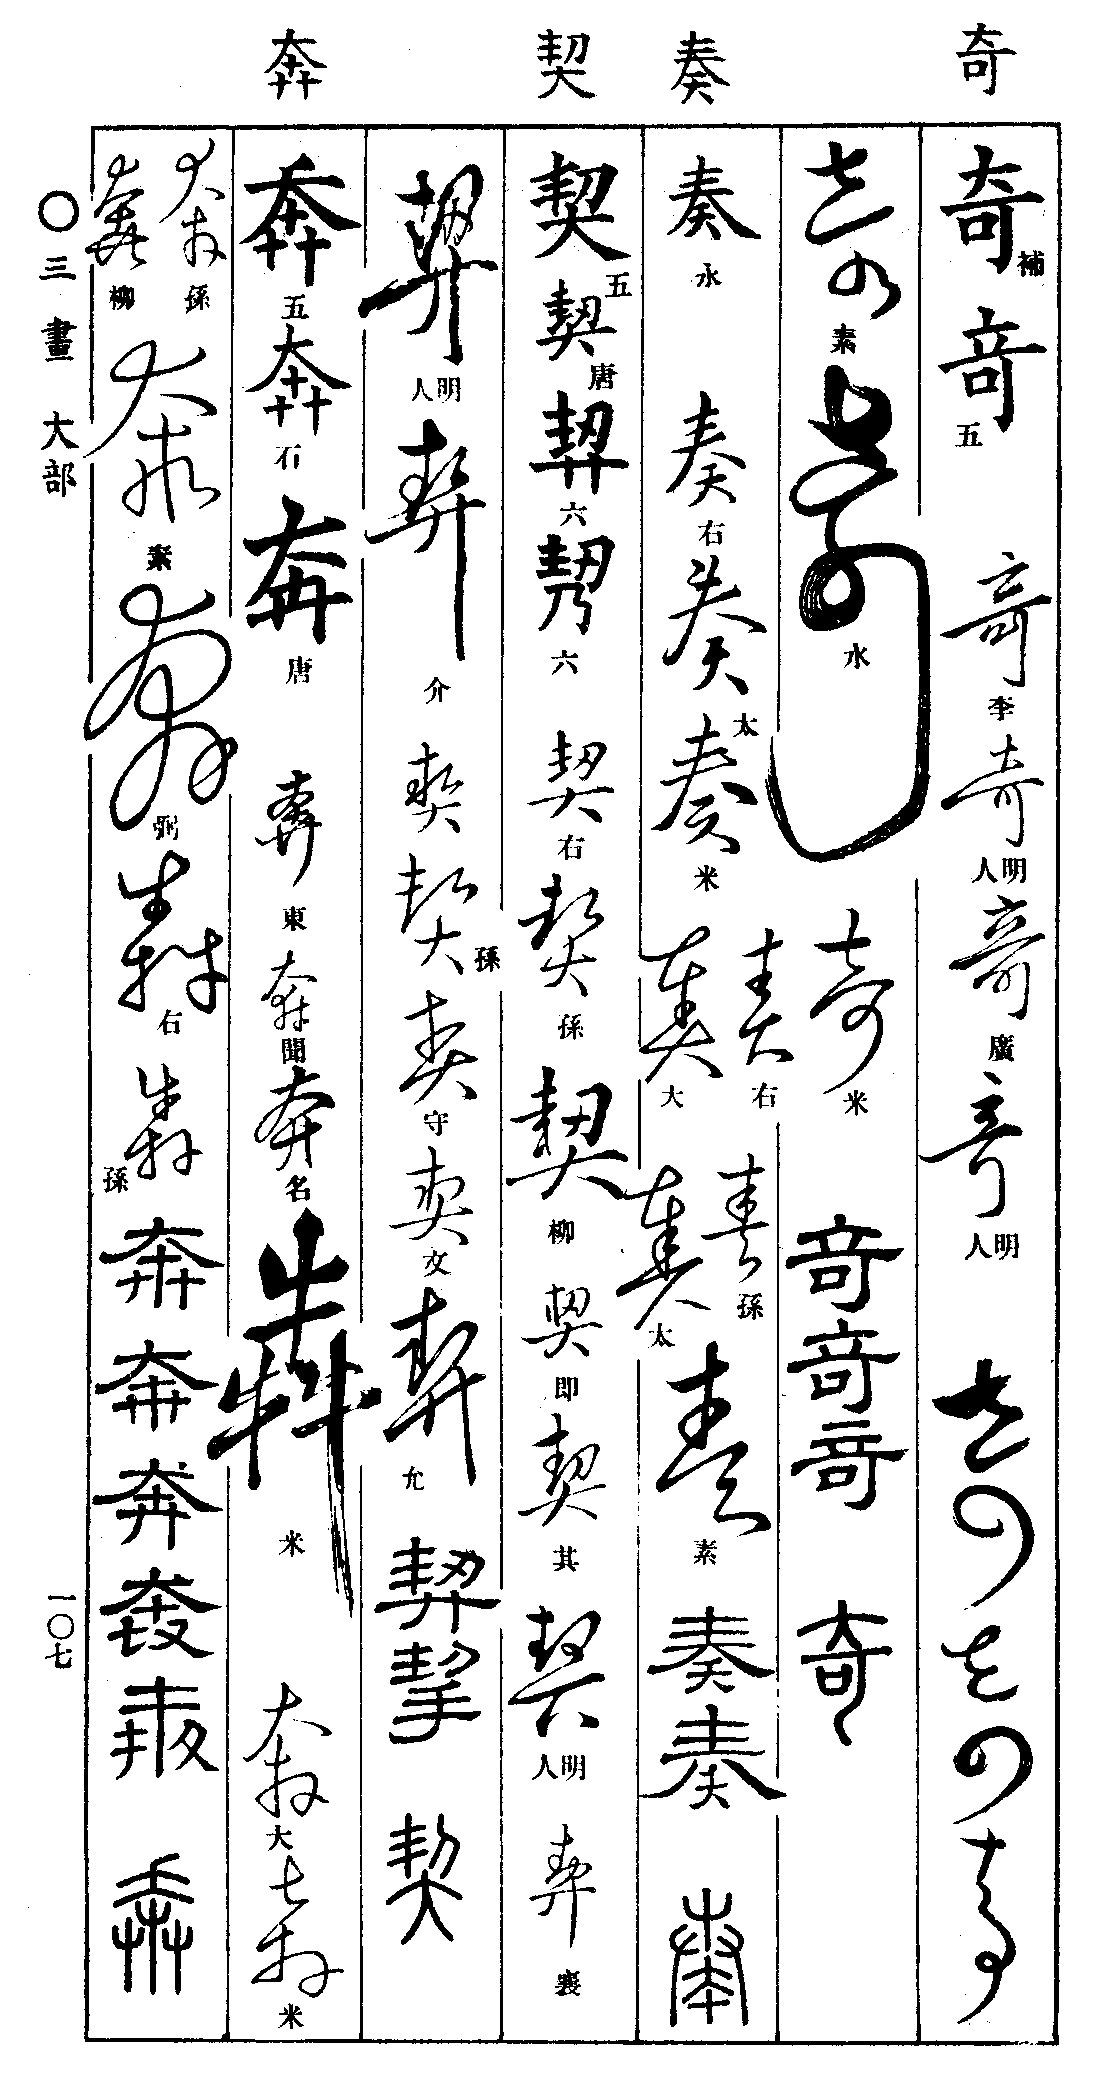 奇 奏 契 奔
奇補 奇五 奇李 奇明人 奇廣 奇明人 奇 奇 奇
奇素 奇水 奇米 奇 奇 奇 奇
奏永 奏右 奏太 奏米 奏右 奏大 奏孫 奏太 奏素 奏 奏 奏
契五 契唐 契六 契六 契右 契孫 契柳 契即 契其 契明人 契襄
契明人 契介 契 契孫 契守 契文 契允 契 契 契
奔五 奔石 奔唐 奔東 奔聞 奔名 犇米 奔大 奔米
奔孫 奔柳 奔素 奔弼 犇右 犇孫 奔 奔 奔 奔 奔 奔
〇三畫 大部
一〇七